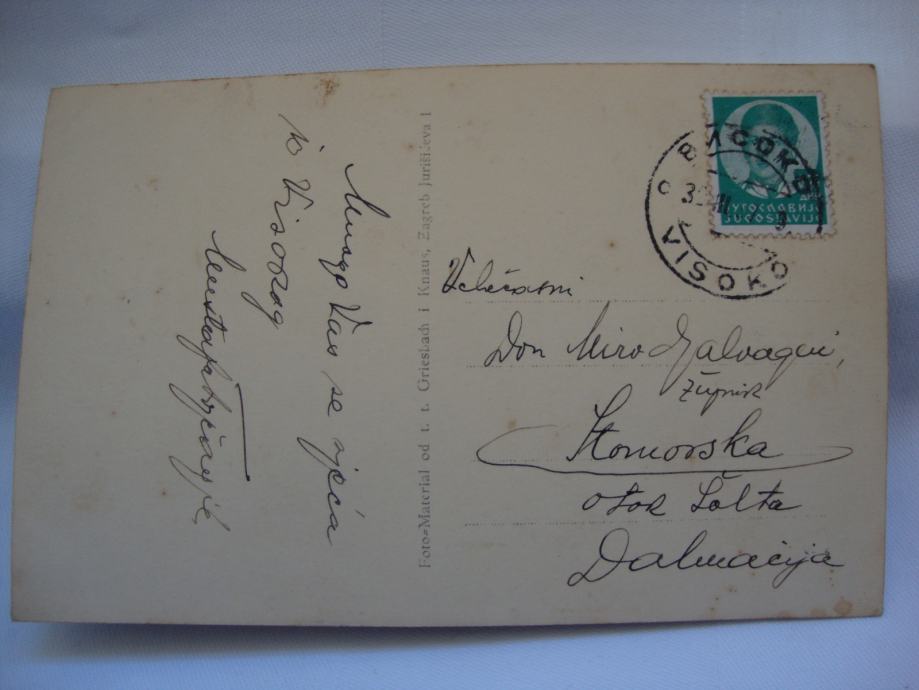 Mnogo Vas se sjeća
iz Visokog
Foto=Material od t. t. Griesbach i Knaus, Zagreb Jurišićeva 1
ВИСОКО
VISOKO
ЈУГОСЛАВИЈА
JUGOSLAVIJA
Velečasni
Don Miro
župnik
Stomorska
otok Šolta
Dalmacija